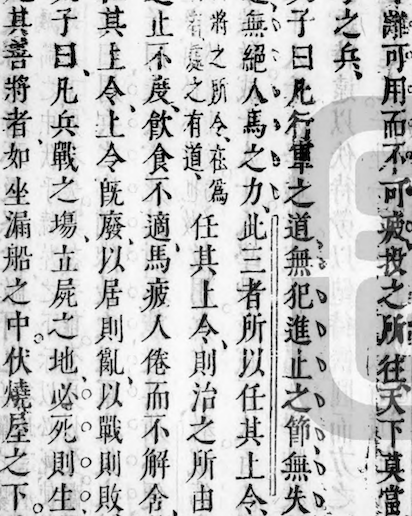 離可用而不可疲投之所往天下莫當
子之兵、
子曰凡行軍之道無犯進止之節無失
無絕人馬之力此三者所以任其上令、
將之所令在為
處之有道、
任其上令、則治之所由
止不度、飲食不適、馬疲人倦而不解舍、
其上令、上令既廢、以居則亂、以戰則敗
子曰、凡兵戰之場、立屍之地、必死則生、
其善將者、如坐漏船之中。伏燒屋之下。